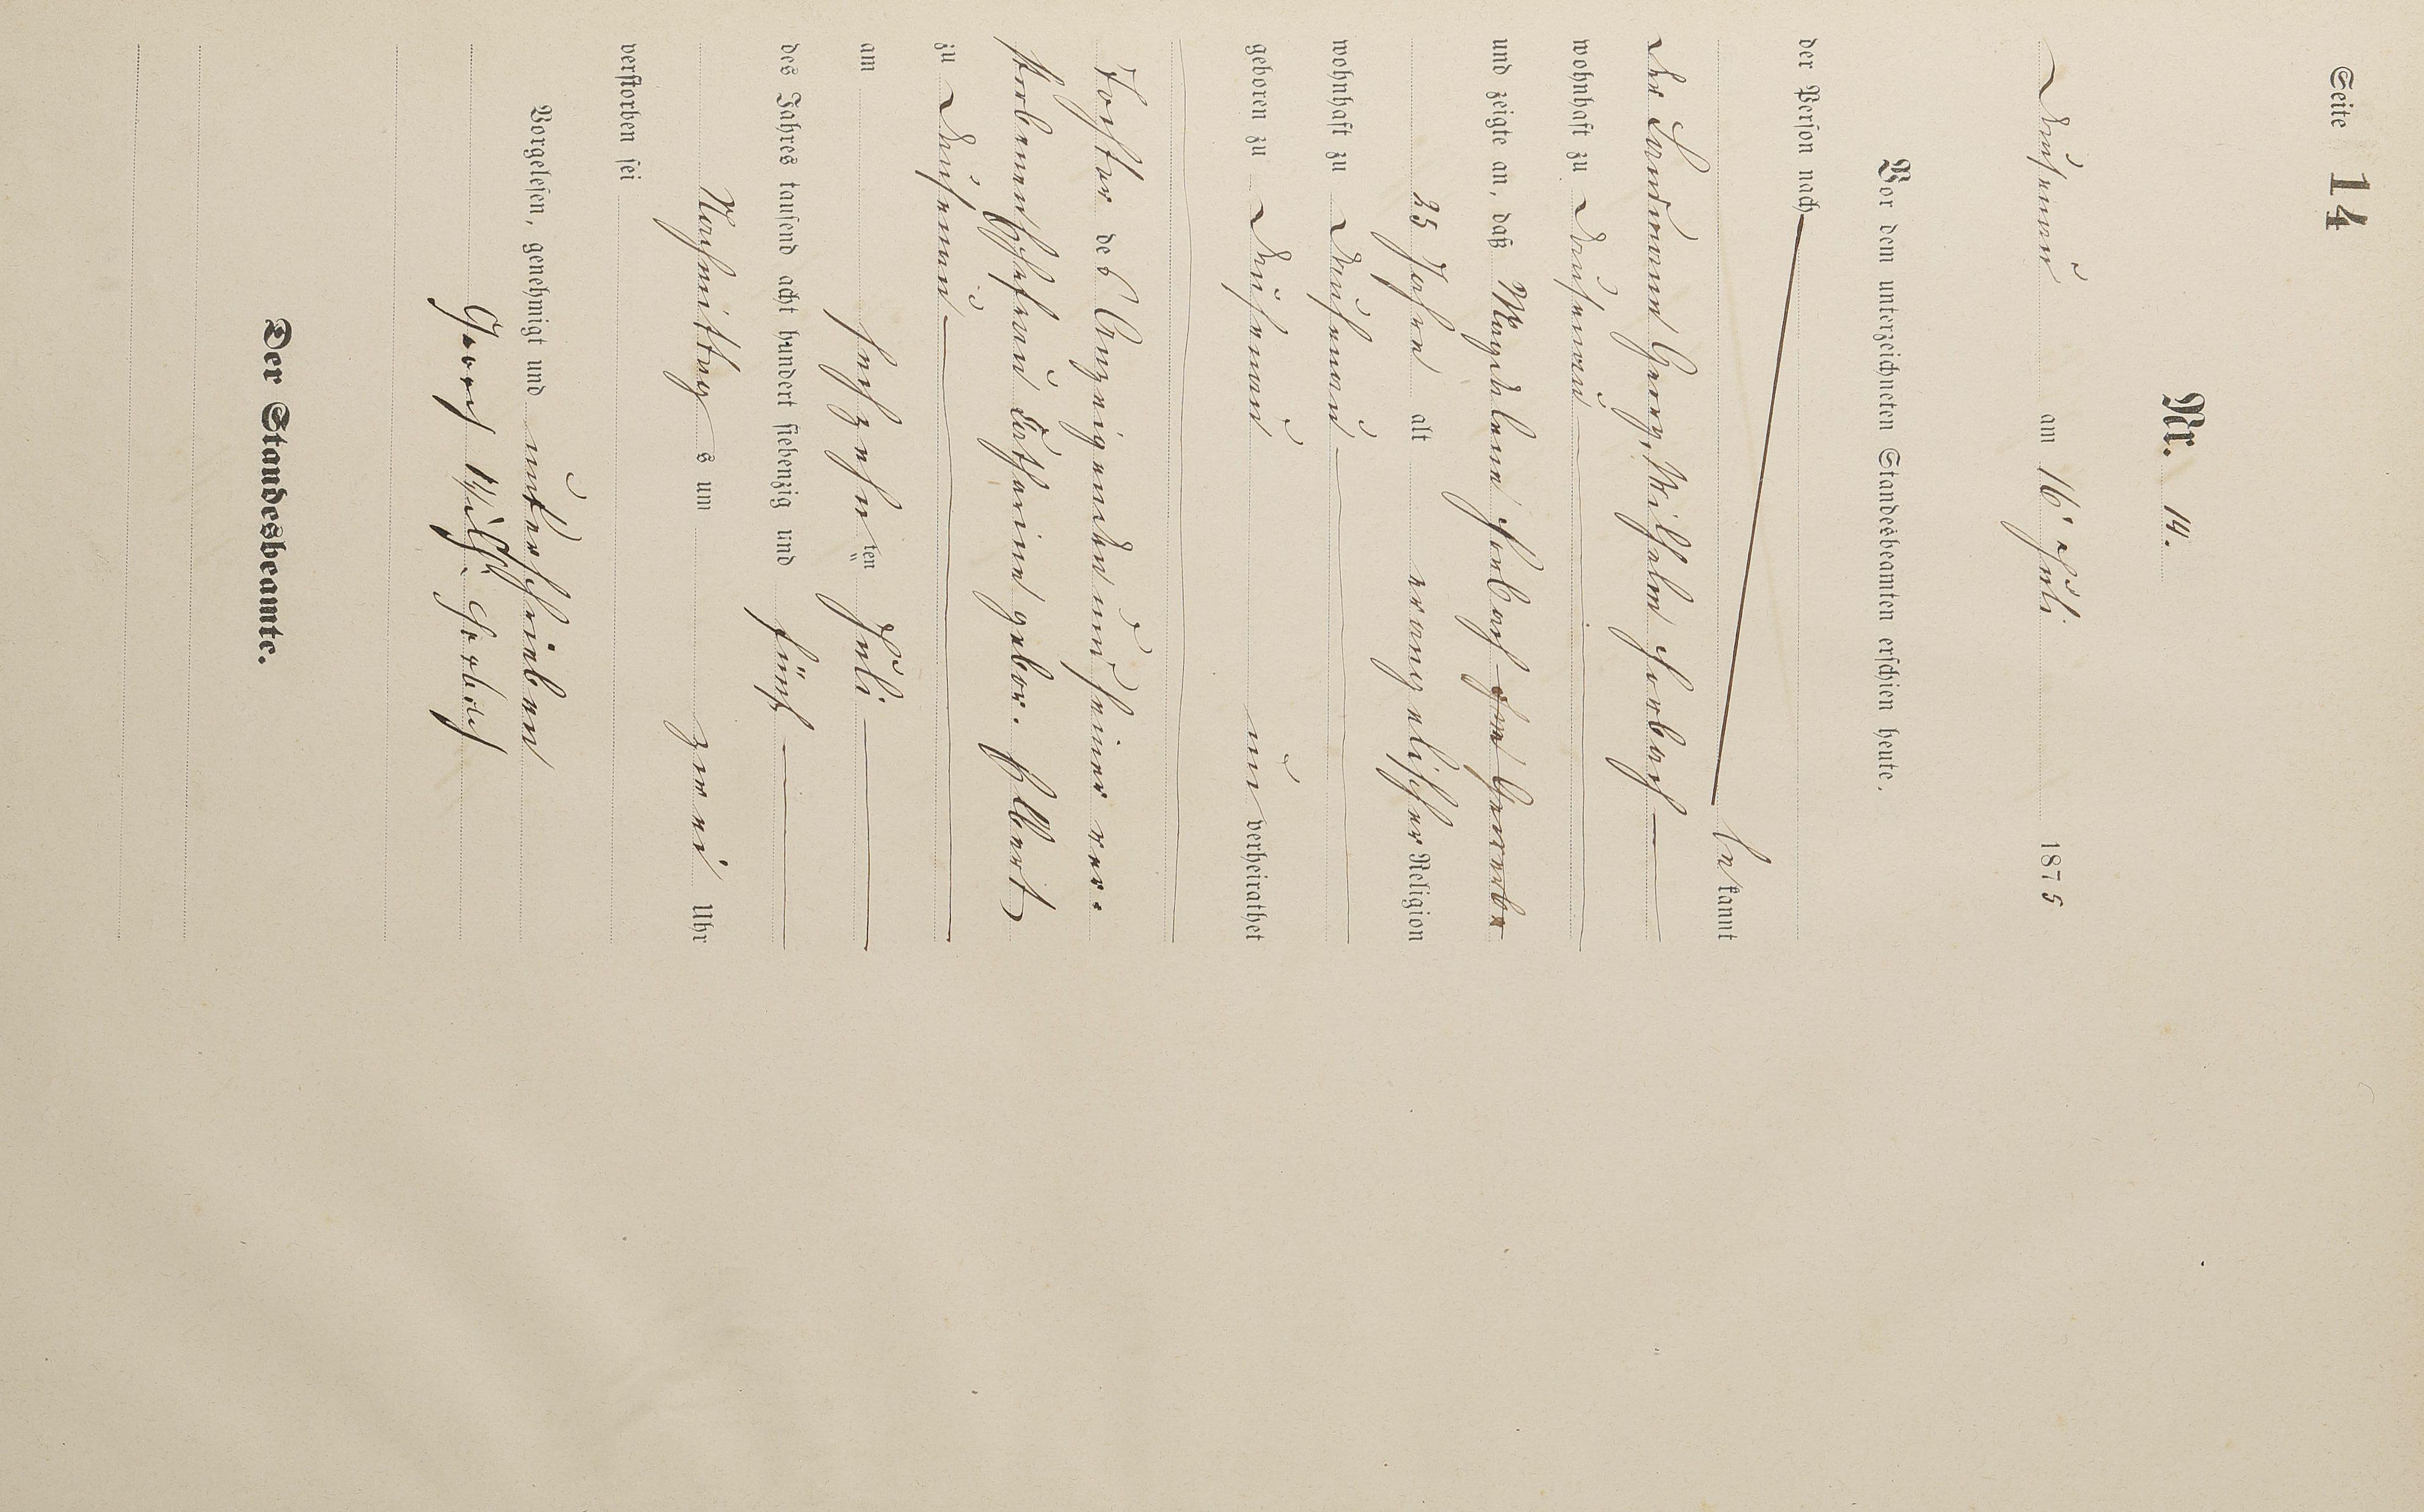 Seite 14
Nr. 14.
Dausenau am 16. Juli 1875
Vor dem unterzeichneten Standesbeamten erschien heute,
der Person nach
bekannt
der Landmann Georg Wilhelm Horbach
wohnhaft zu Dausenau
und zeigte an, daß Magdalena Horbach ohne Gewerbe
25 Jahre alt evangelischer Religion
wohnhaft zu Dausenau
geboren zu Dausenau un verheirathet
Tochter des Anzeigenden und seiner ver-
storbenen Ehefrau Catharina gebor. Elbert
zu Dausenau
am sechzehnten Juli
des Jahres tausend acht hundert siebenzig und fünf
Nachmittag s um zwei Uhr
verstorben sei
Vorgelesen, genehmigt und unterschrieben
Georg Wilh. Horbach
Der Standesbeamte.